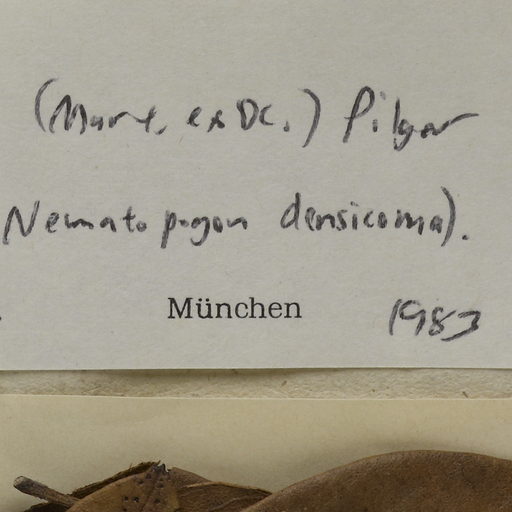 (Mart. ex DC.) Pilger
Nematopogon densicoma).
München 1983